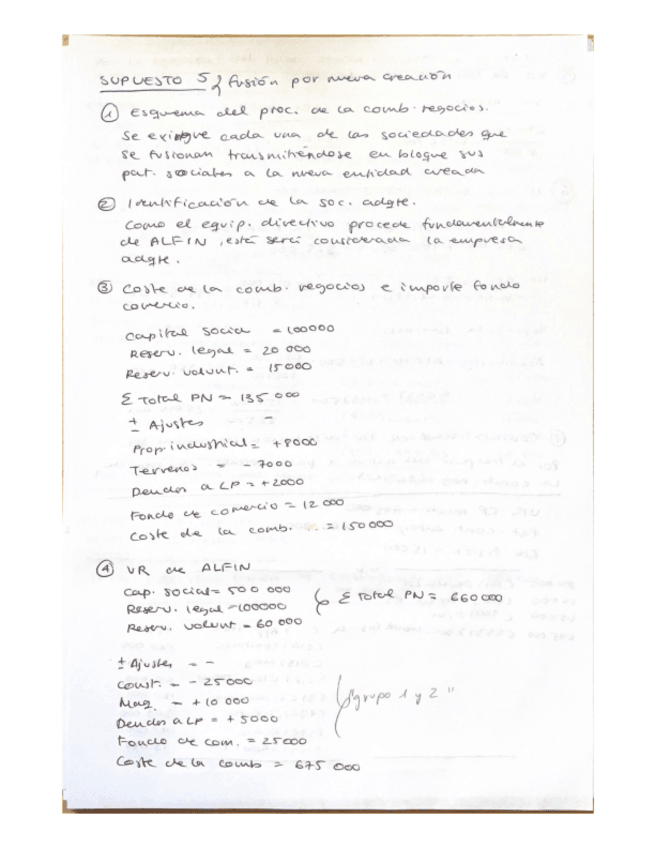 SUPUESTO 5 } fusión por nueva creación
① Esquema del proc. de la comb. negocios.
Se extingue cada una de las sociedades que
se fusionan transmitiéndose en bloque sus
pat. sociales a la nueva entidad creada
② Identificación de la soc. adqte.
Como el equip. directivo procede fundamentalmente
de ALFIN, esta será considerada la empresa
adqte.
③ Coste de la comb. negocios e importe fondo
comercio.
Capital Social = 100000
Reserv. legal = 20 000
Reserv. volunt. = 15000
Σ Total PN = 135 000
± Ajustes -
Prop. industrial = +8000
Terrenos = - 7000
Deudas a LP = +2000
Fondo de comercio = 12 000
Coste de la comb. = 150 000
④ VR de ALFIN
Cap. social = 500 000
Reserv. legal = 100000 } Σ Total PN = 660 000
Reserv. volunt = 60 000
± Ajustes = -
Const. = - 25000
Maq. = + 10 000 } "grupo 1 y 2"
Deudas a LP = + 5000
Fondo de com. = 25000
Coste de la comb = 675 000